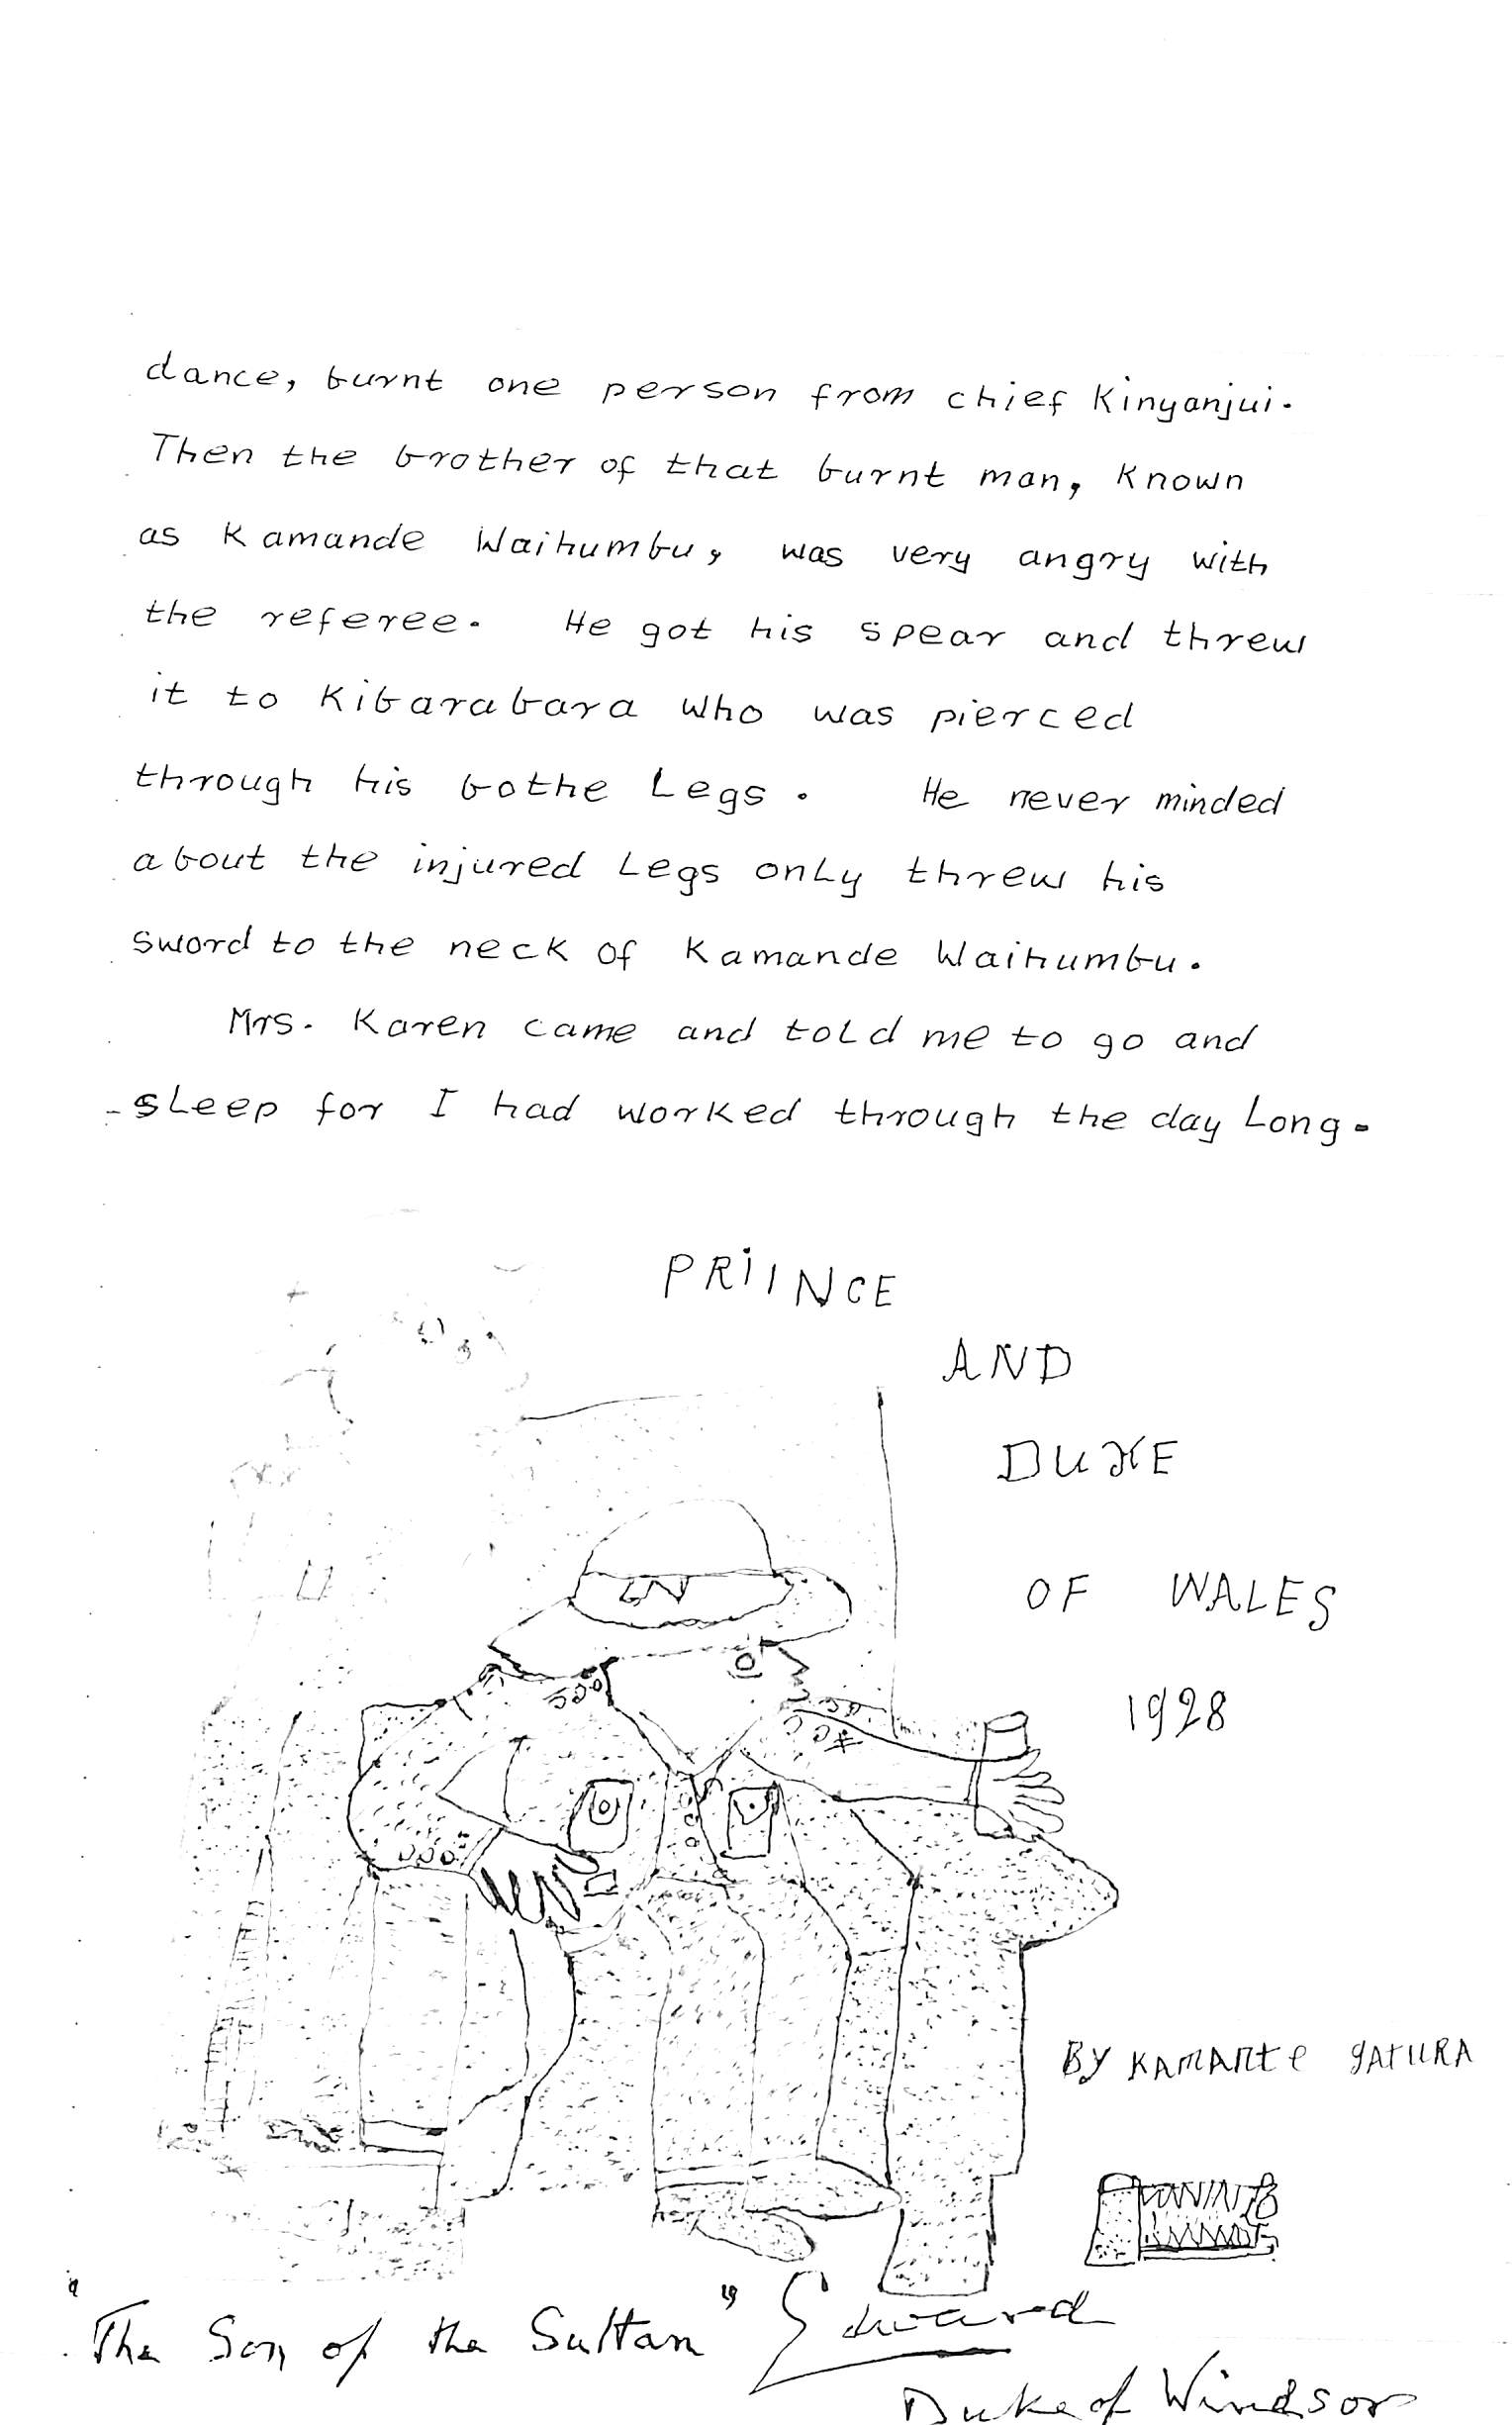 dance, burnt one person from chief Kinyanjui.
Then the brother of that burnt man, known
as Kamande Waihumbu, was very angry with
the referee. He got his spear and threw
it to Kibarabara who was pierced
through his bothe Legs. He never minded
about the injured Legs only threw his
sword to the neck of Kamande Waihumbu.
Mrs. Karen came and told me to go and
sleep for I had worked through the day Long.
PRIINCE
AND
DUKE
OF WALES
1928
BY KAMANTE GATURA
"The Son of the Sultan" Edward
Duke of Windsor